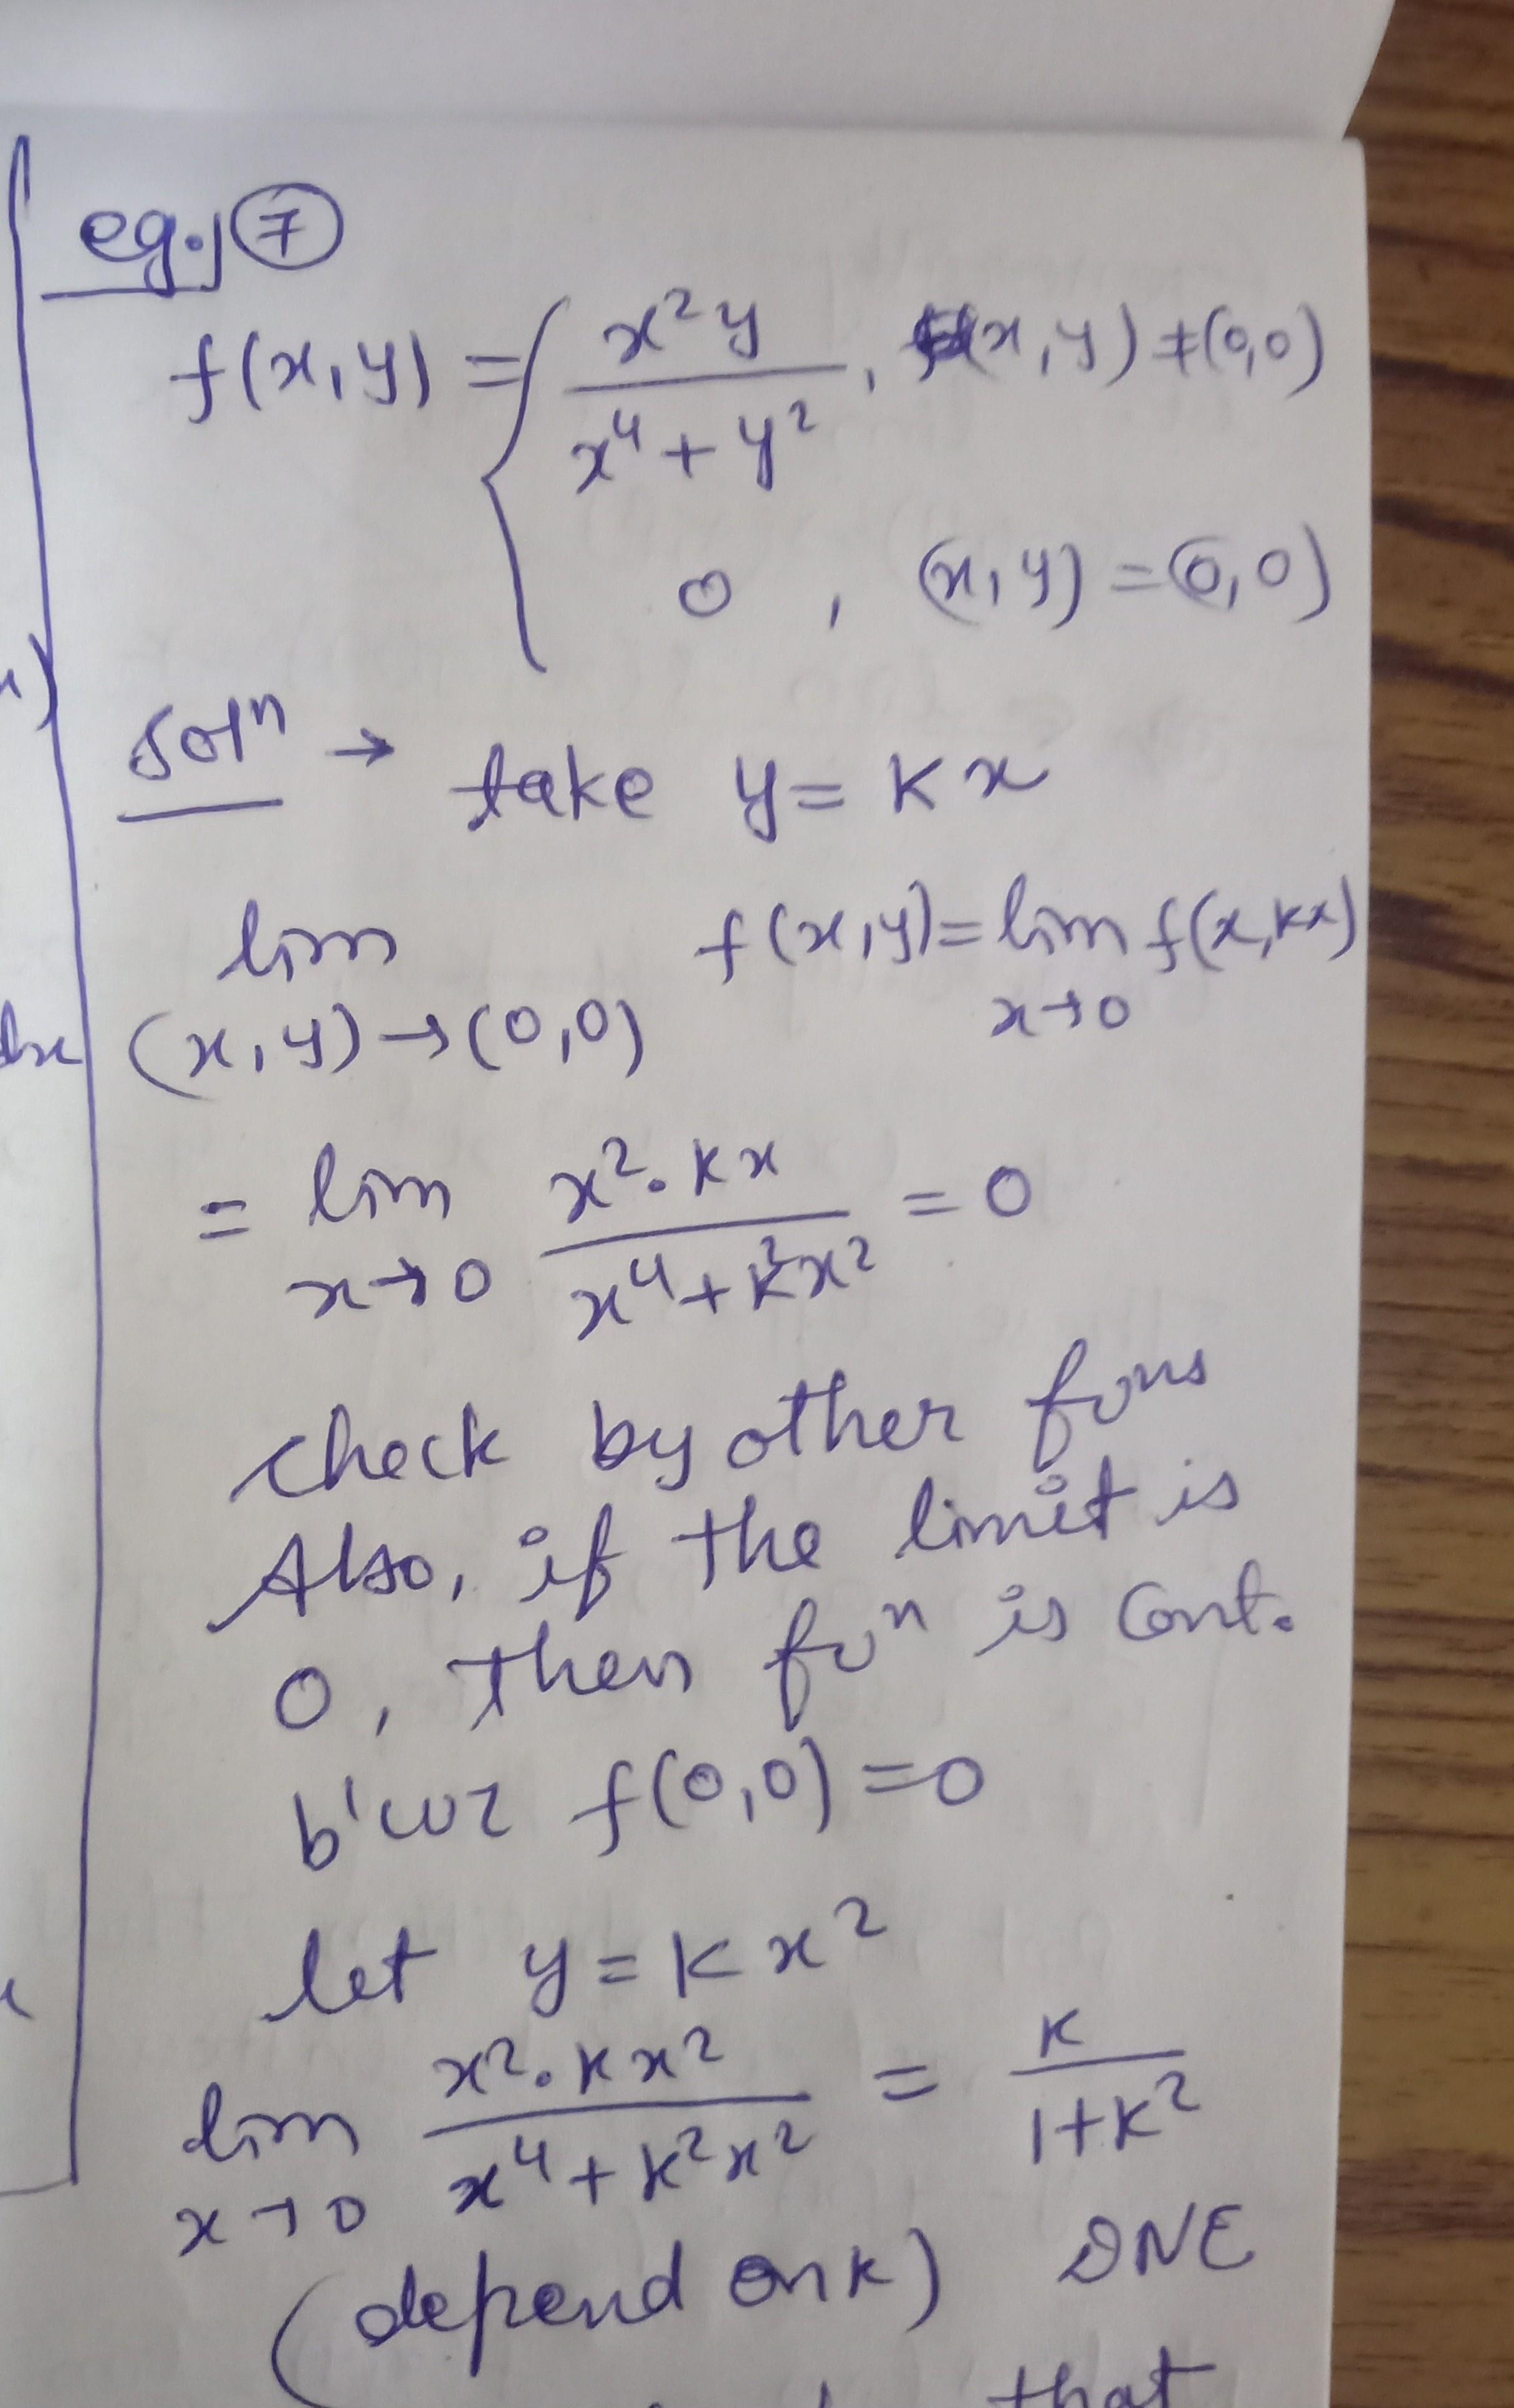 eg. 7
f(x,y) = { x²y / x⁴ + y² , (x,y) ≠ (0,0)
0 , (x,y) = (0,0)
Solⁿ → take y = kx
lim f(x,y) = lim f(x,kx)
(x,y)→(0,0) x→0
= lim x→0 x²·kx / x⁴ + k²x² = 0
check by other funs
Also, if the limit is
0, then fuⁿ is cont.
b'coz f(0,0) = 0
let y = kx²
lim x→0 x²·kx² / x⁴ + k²x² = k / 1+k²
(depend on k) DNE
that